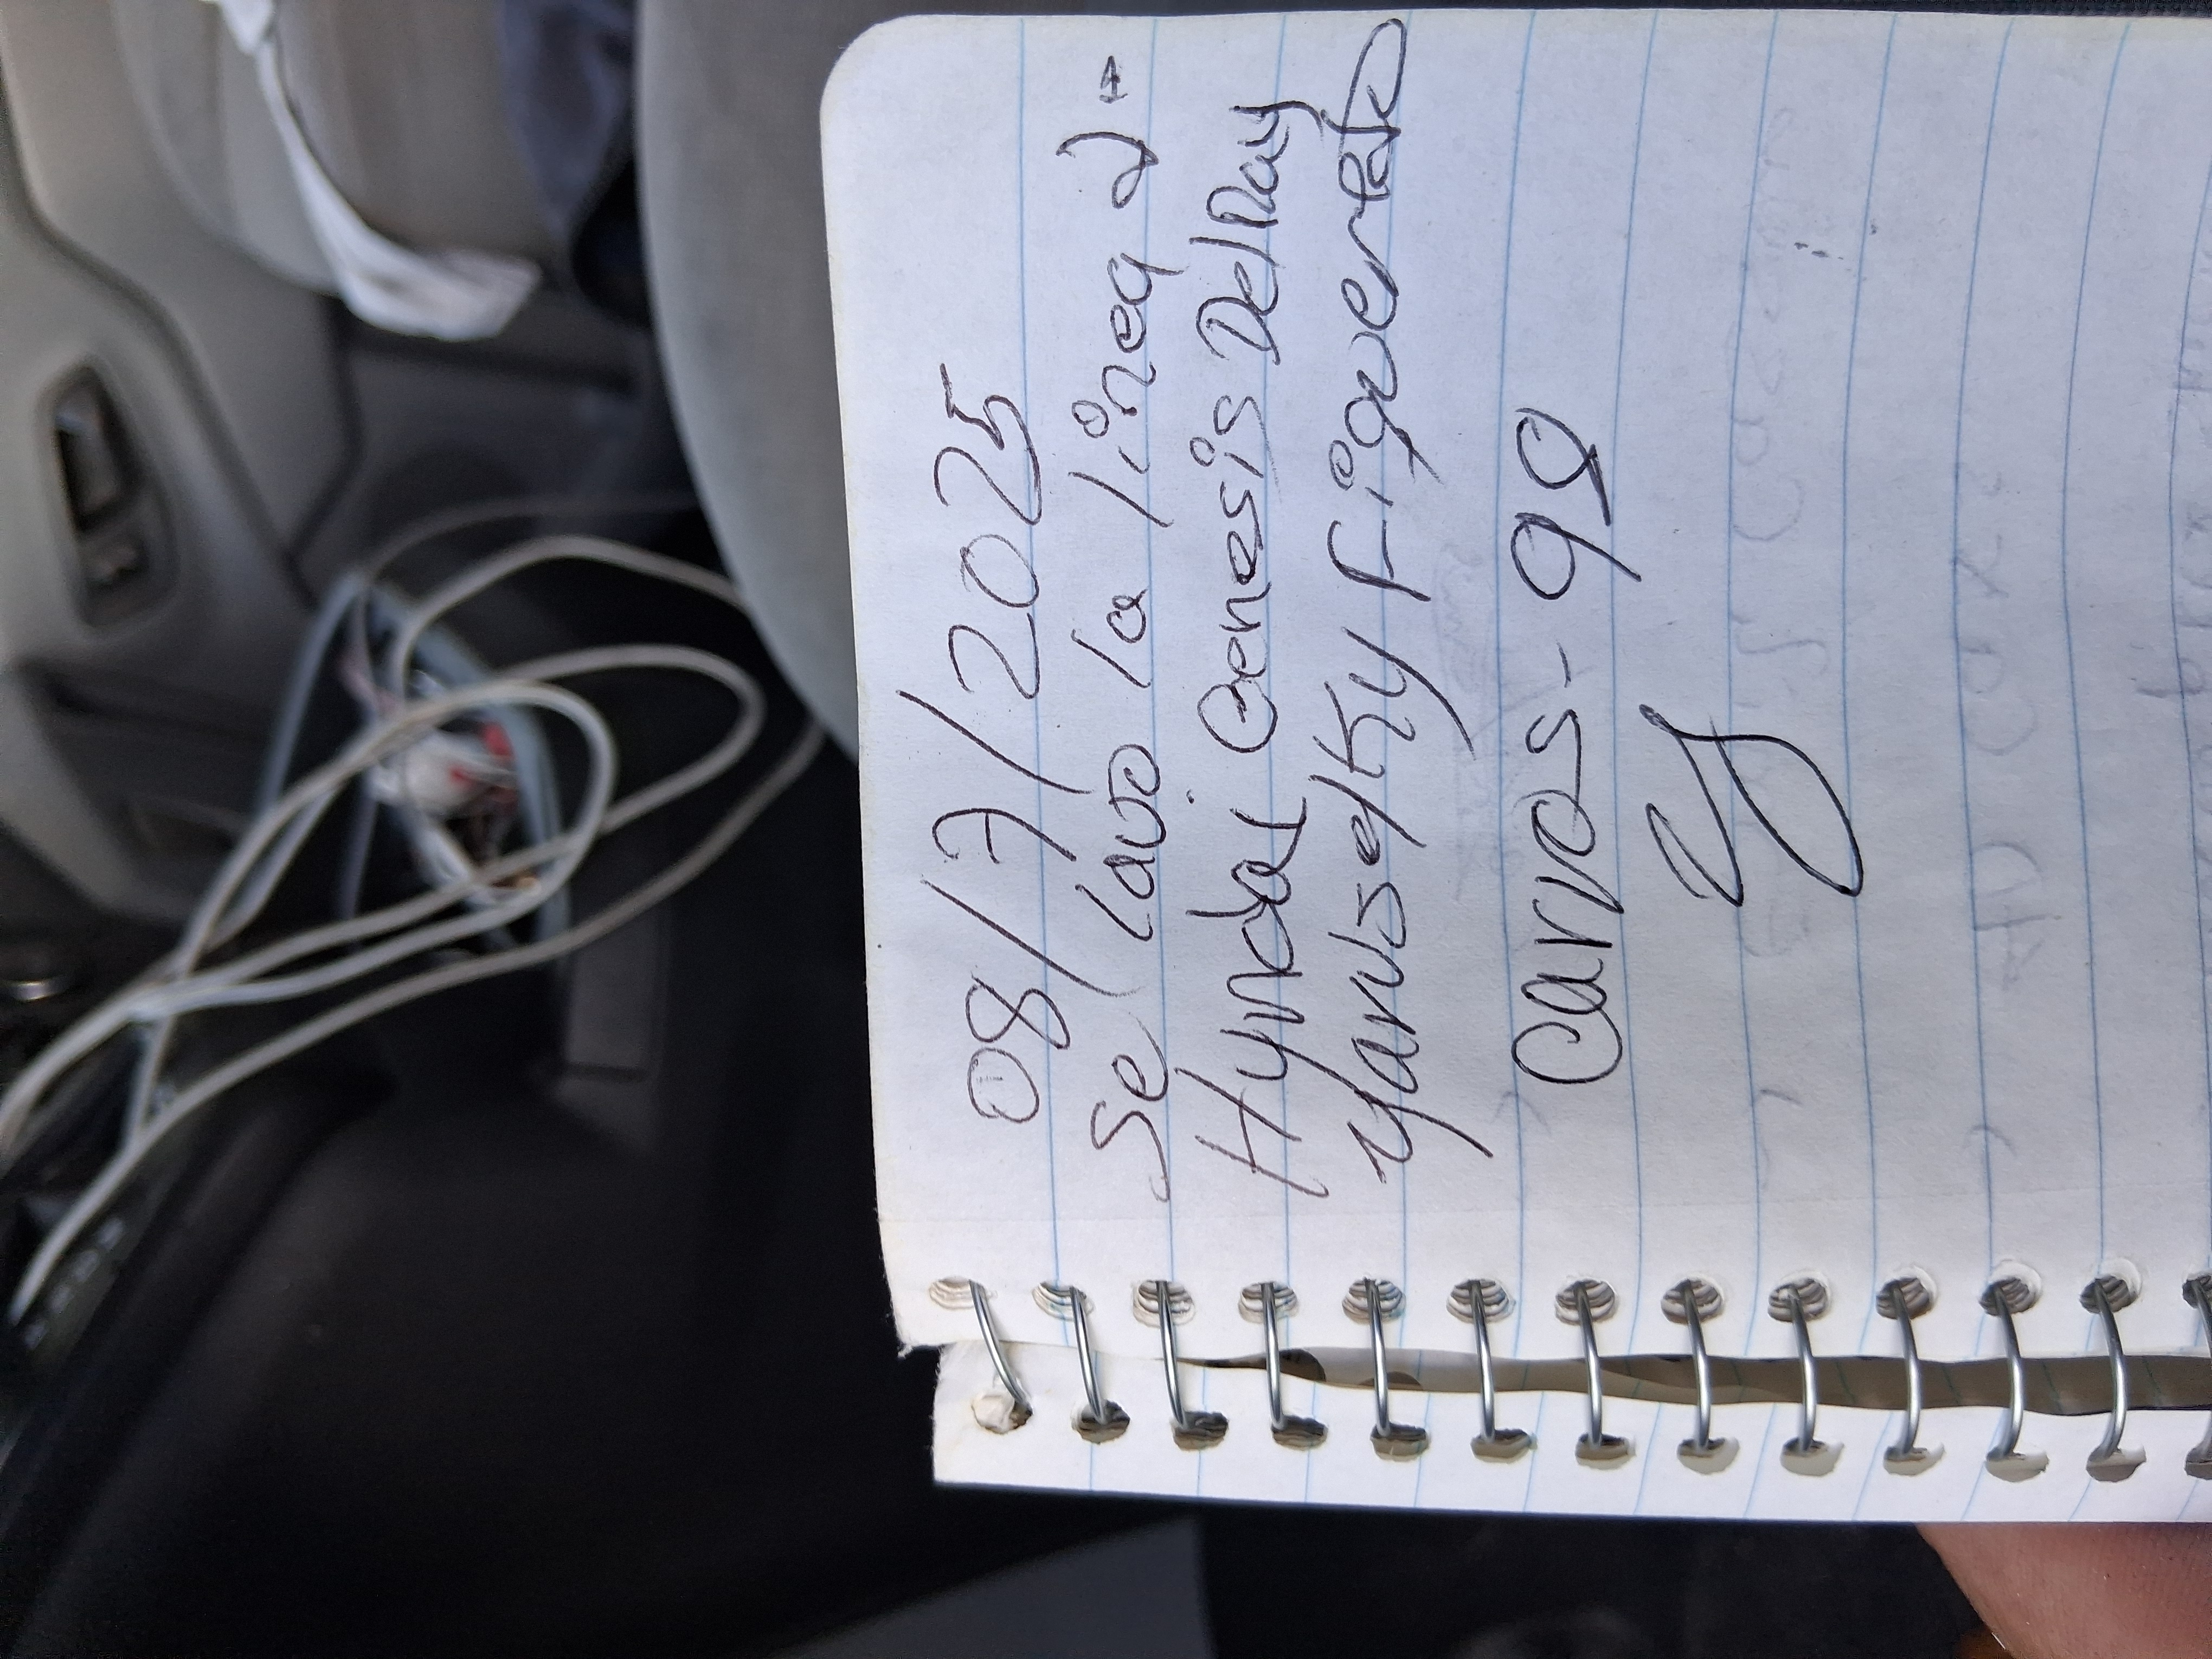 08/7/2025
Se lavo la linea 2-A
Hyndai Genesis Dellay
Yaruselky Figuereo
Carros- 98